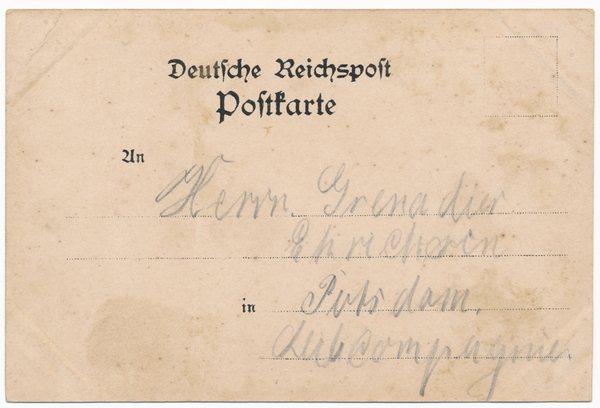 Deutsche Reichspost
Postkarte
An
Herrn Grenadier
in Potsdam.
Leibcompagnie.